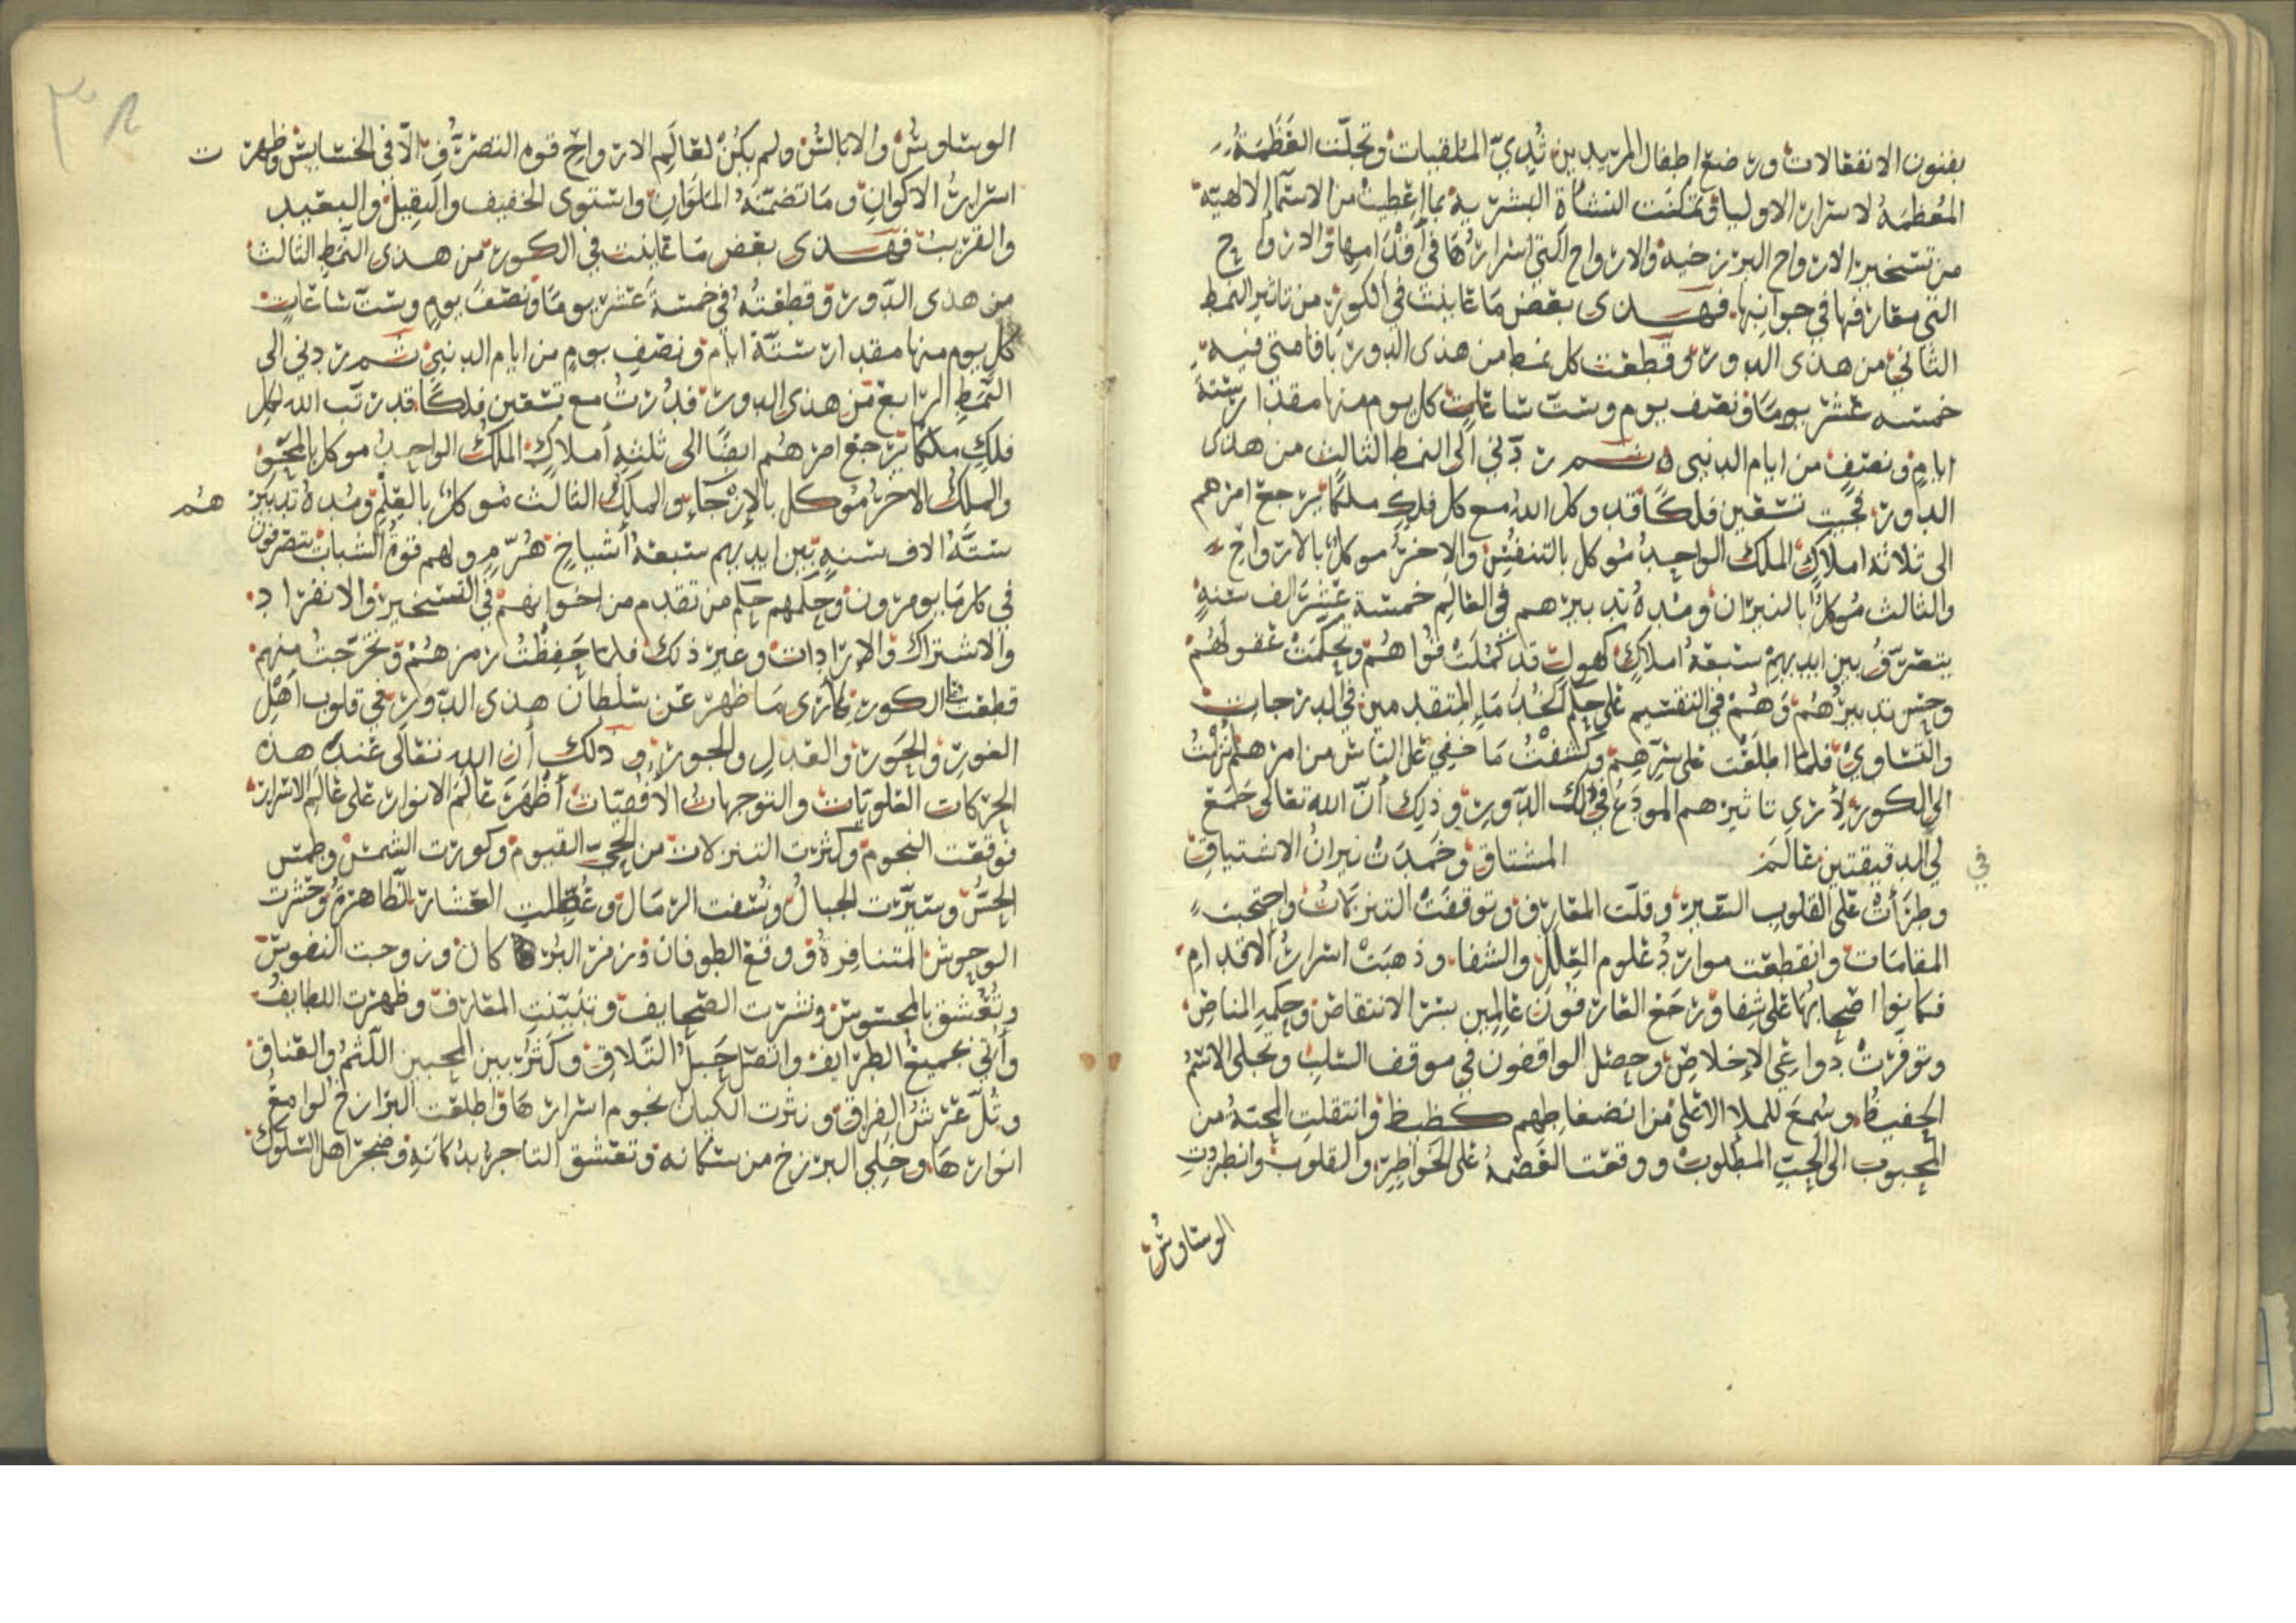 بفنون الانفعالات ورضع اطفال المريدين ثُدِيّ المتلقيات وتجلّت العَظَمَةُ
المُعَظمَهُ لاسرار الاوليا وتمكنَت النشأة البشرية بما اعطيت من الاسمآ الالاهيّة
من تسخير الارواح البرزخيه والارواح التي اسرارُهَا في أقدامِها والارواح
التي معارفها في جوانبها. فهذى بعض مَا عَاينت في الكورِ من تاثير النمط
الثاني من هذى الدورِ وقطعت كل نمط من هذى الدور باقامتى فيه
خمسه عشر يومًا ونصف يوم وست سَاعَاتٍ كل يوم منها مقدار ستة
ايامٍ ونصفٍ من ايام الدنيى ثم ردّني الى النمط الثالث من هذى
الدور تحت تسعين فلكًا قد وكل الله مع كل فلكٍ ملكًا يرجع امرهم
الى ثلاثة املاكٍ الملك الواحِدُ مُوكل بالتنفيس والاخرُ موكلٌ بالارواحِ
والثالث مُوكلٌ بالنيران ومُدهُ تدبيرهم في العَالَمِ خمسة عَشَرَ الف سَنهٍ
يتصرّفُ بين ايديهِمْ سبعَهُ املاكٍ كهولٍ قد كَمُلَتْ قُوَاهُمْ وتحكمَتْ عقولهُمْ
وحسن تدبيرُهُم وَهُمْ في التقسيم على حكم الحُدَمَاءِ المتقدمين في الدرجات
والتساوي فلما اطلَعْت على سِرِّهِم وكشفْتُ مَا خَفِي على الناس من امرهم نُزلْتُ
الى الكور لأرى تاثيرهم المودَعُ في ذلك الدَّورِ وذلِك أنّ الله تعَالى جَمَعَ
لي الدقيقتين عَالَمَ المشتاق وخَمَدَتْ نيرانُ الاشتياقِ
في
وطرَأَتْ على القلوب السّير وقلّت المعَارِف وتوقفَتْ التنزّلاتُ واحتجبَت
المقامَات وانقطعَت مواردُ علوم العِللِ والشفا وذهبَتْ اسرارُ الاقدامِ
فكانوا اصحابُهَا على شِفا ورَجَعَ العَارفُونَ عَالِمِين بسِرّ الانتقاض وحكمهِ المناضِ
وتوفّرتْ دواعِي الإخلاصِ وحصَل الواقفون في موقف السّلبِ وتجلى الاسْمُ
الحفيظُ. وسُمِعَ للملا الاعْلى من انضغاطِهم كظيظ وانتقلتِ المحبّهُ من
المحبوب الى المحبّ المطلوب ووقعَت العَصْمهُ على الخواطِرِ والقلوب وانطردتِ
الوسَاوسُ
الوسَاوسُ والابالسُ ولم يكُنْ لعَالَمِ الارواحِ قوه التصرّفِ الّا في الخسَايس وظهرت
اسرارُ الاكوانِ ومَا تضمّنَهُ المَلَوَانِ واستوى الخفيف والثقِيلُ والبعيد
والقريب فهذى بعض مَا عَاينت في الكور من هذى النَّمَطِ الثالث
من هذى الدّورِ وقطعتُهُ في خمسَةَ عَشَرَ يومًا ونصفَ يومٍ وستّ سَاعَاتٍ
كل يوم منها مقدار ستّة ايام ونصفِ يومٍ من ايام الدنيى ثمّ ردني الى
النّمَطِ الرّابع من هذى الدور فدُرتُ مع تسْعين فلكًا قد رتّب الله لكل
فلكٍ ملكًا يرجعُ امرهُم ايضًا الى ثلثهِ أملاكٍ. الملَكُ الواحِدُ موكل بالمحو
والملَكُ الاخرُ مُوكل بالإرْجَاءِ والملَكُ الثالث مُوكلٌ بالعِلْمِ ومُدهُ تدبيرهُم
ستّهُ الاف سَنهٍ بين ايديهم سَبعهُ أشياخٍ هُرّمٍ ولهم قوهُ الشباب يتصرفون
في كل مَا يومرون وحُكمهم حكم من تقدم من اخوانهم في التسخير والانفراد.
والاشتراك والإرَادات وغير ذلك فلما حَفِظْتُ رمزهُمْ وتخرّجتُ منهم
قطعت الكور لأرى مَا ظهرَ عَن سُلطان هذى الدّورِ في قلوب اهْل
الغورِ والحَور والعَدلِ والجور. وذلك أن الله تعَالى عَندَ هذه
الحركات العُلويّات والتوجهاتُ الأُفُقيّات أظْهَرَ عَالَمَ الانوار عَلى عَالَم الاسْرار
فوقعَت النجوم وكثرَت التنزلاتُ من الحيّ القيوم وكورَت الشمس وطُمس
الحسُّ وسيّرت الجبالُ ونُسفت الرمَال وعُطلتِ العشارُ الطّاهرهُ وحشرت
الوحوشُ المتنافِرهُ ووقع الطوفان وزمر البر كان وزوجت النفوس
وتُعُشق بالمحسوس ونشرَت الصّحايف وتبيّنتِ المعَارف وظهرت اللطايفُ
وأُتي بجميع الطّرايف واتصل حَبلُ التّلاق وكَثُرَ بين المحبين اللّثمُ والعنَاق
وثُلّ عَرْشُ الفراق ونثرت الكيان نجوم اسرارهَا واطلعَت البرازخُ لوامعَ
انوارهَا. وخَلِي البرزخ من سُكانه وتعشق التاجرُ بدُكانَهِ وضجر اهل السّلوك